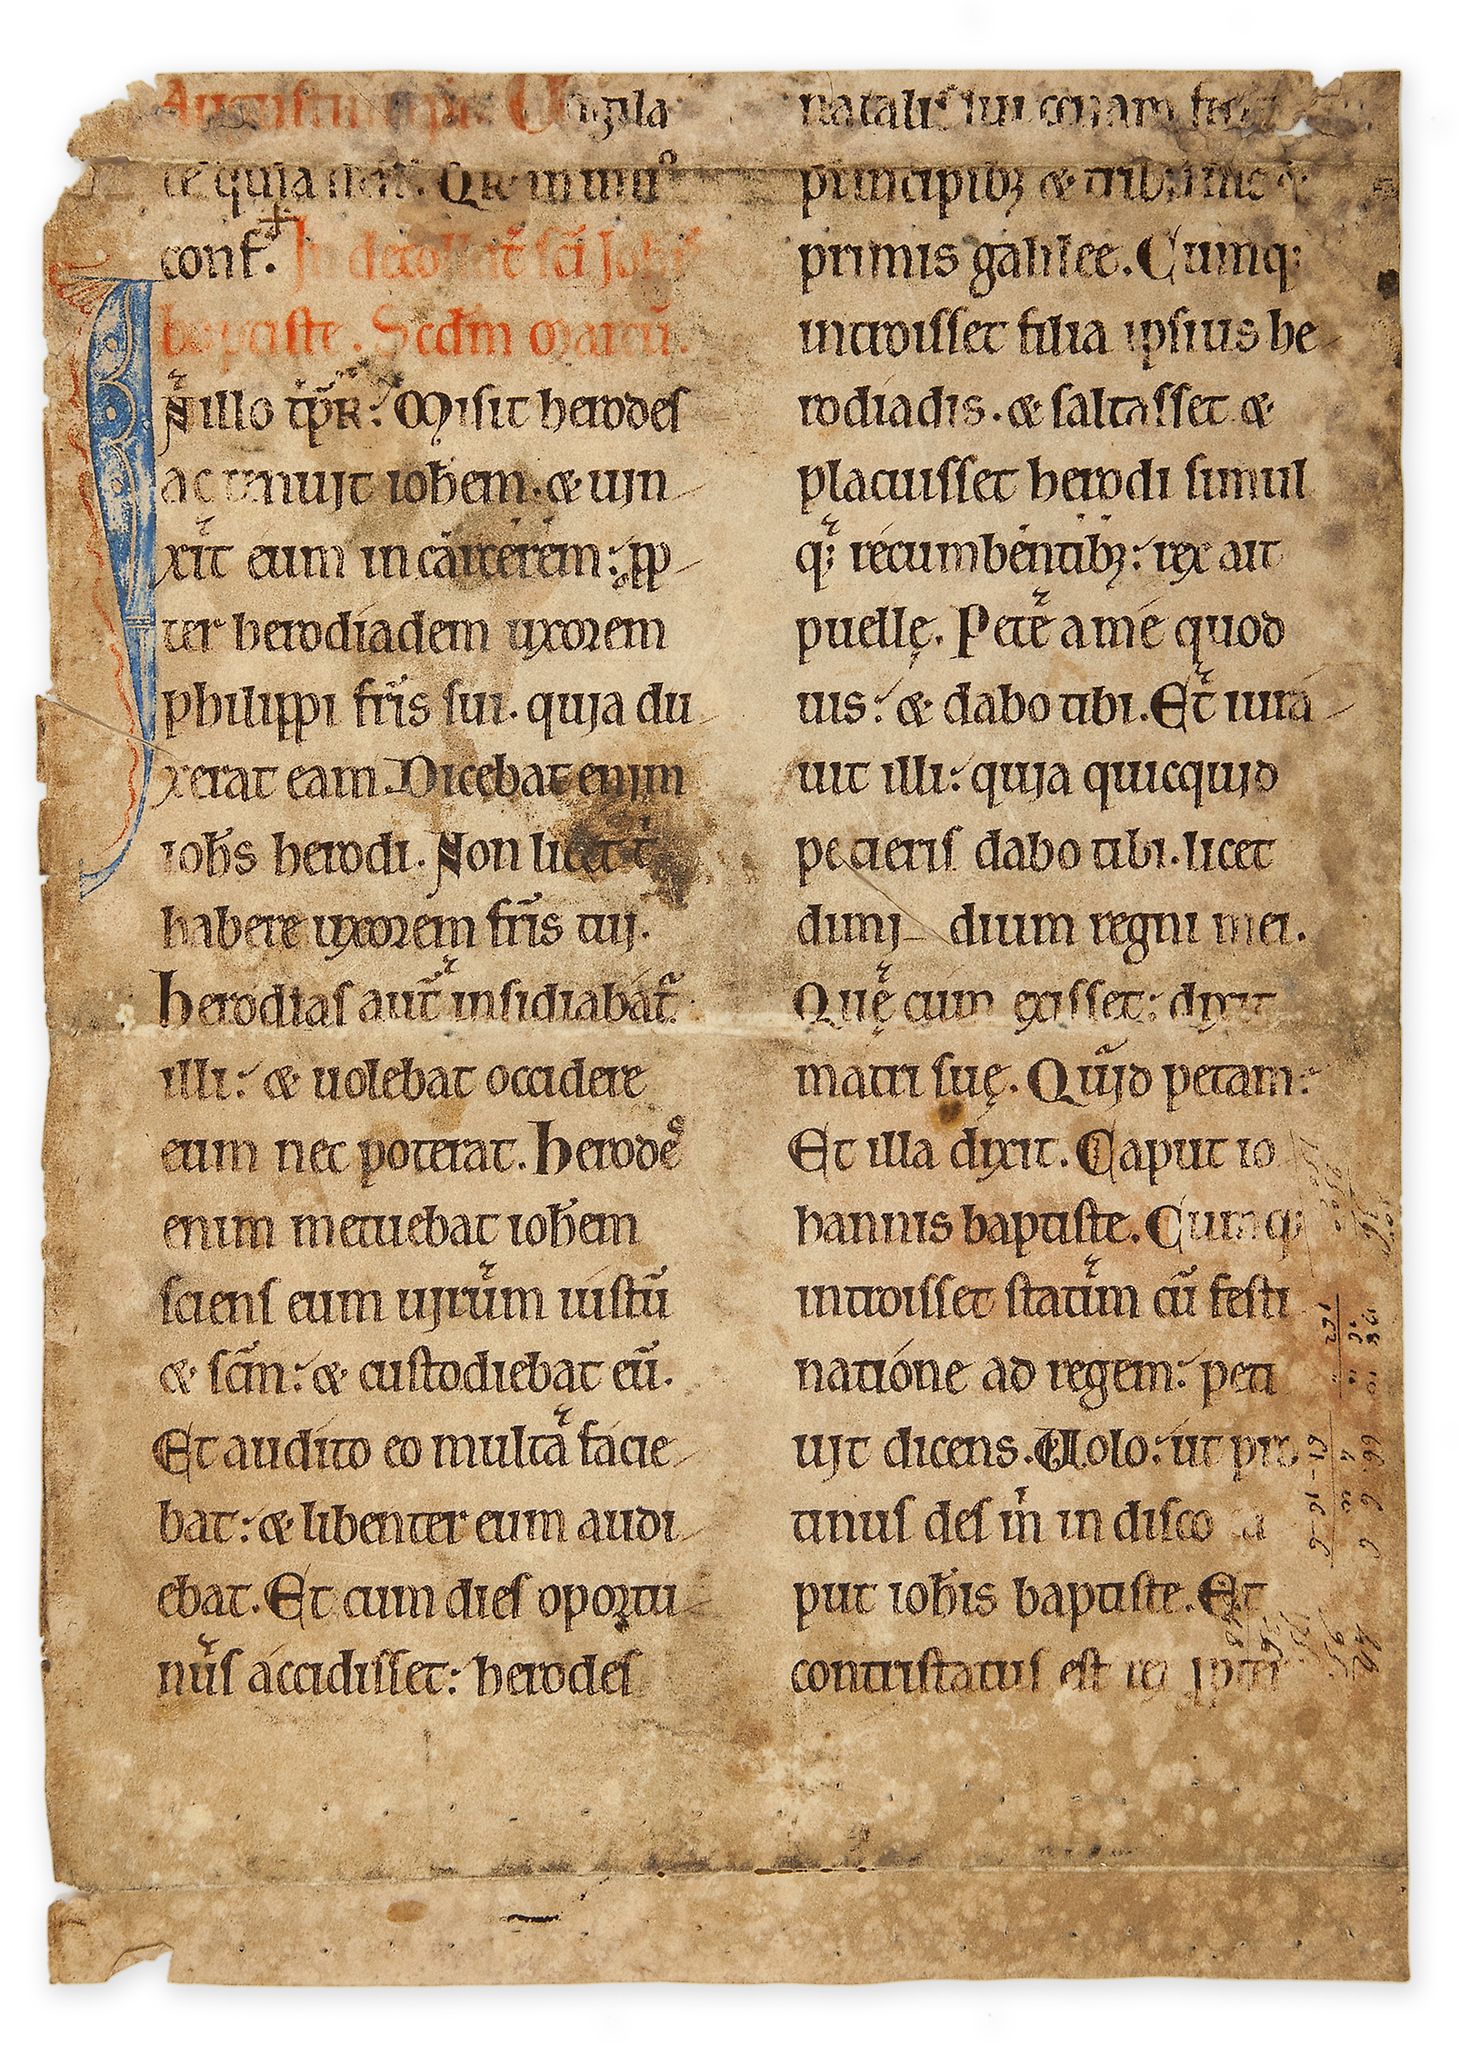 Augustini epi. Vigila
te quia nesc. Qr in uni⁹
conf. In decollat̄ sc̄i Joh̄is
baptiste. Scd̄m marcū.
N illo tp̄r: Misit herodes
ac tenuit ioh̄em. & uin
xit̄ eum in carcerem: prop
ter herodiadem uxorem
philippi fr̄is sui. quia du
xerat eam. Dicebat enim
ioh̄s herodi. Non licet t̄
habere uxorem fr̄is tui.
Herodias aut̄ insidiabat̄
illi: & uolebat occidere
eum nec poterat. Herodes
enim metuebat ioh̄em
sciens eum uirum iustū
& scm̄: & custodiebat eū.
Et audito eo multa facie
bat: & libenter eum audi
ebat. Et cum dies oportu
nus accidisset: herodes
natalis sui cenam fecit
principib; & tribunis &
primis galilee. Cumq;
introisset filia ipsius he
rodiadis. & saltasset &
placuisset herodi simul
q; recumbentib;: rex ait
puellę. Pete a me quod
uis: & dabo tibi. Et iura
uit illi: quia quicquid
petieris dabo tibi. licet
dimi dium regni mei.
Quę cum exisset: dixit
matri suę. Quid petam:
Et illa dixit. Caput io
hannis baptiste. Cumq;
introisset statim cū festi
natione ad regem: peti
uit dicens. Uolo: ut pro
tinus des m̄ in disco ca
put ioh̄is baptiste. Et
contristatus est rex